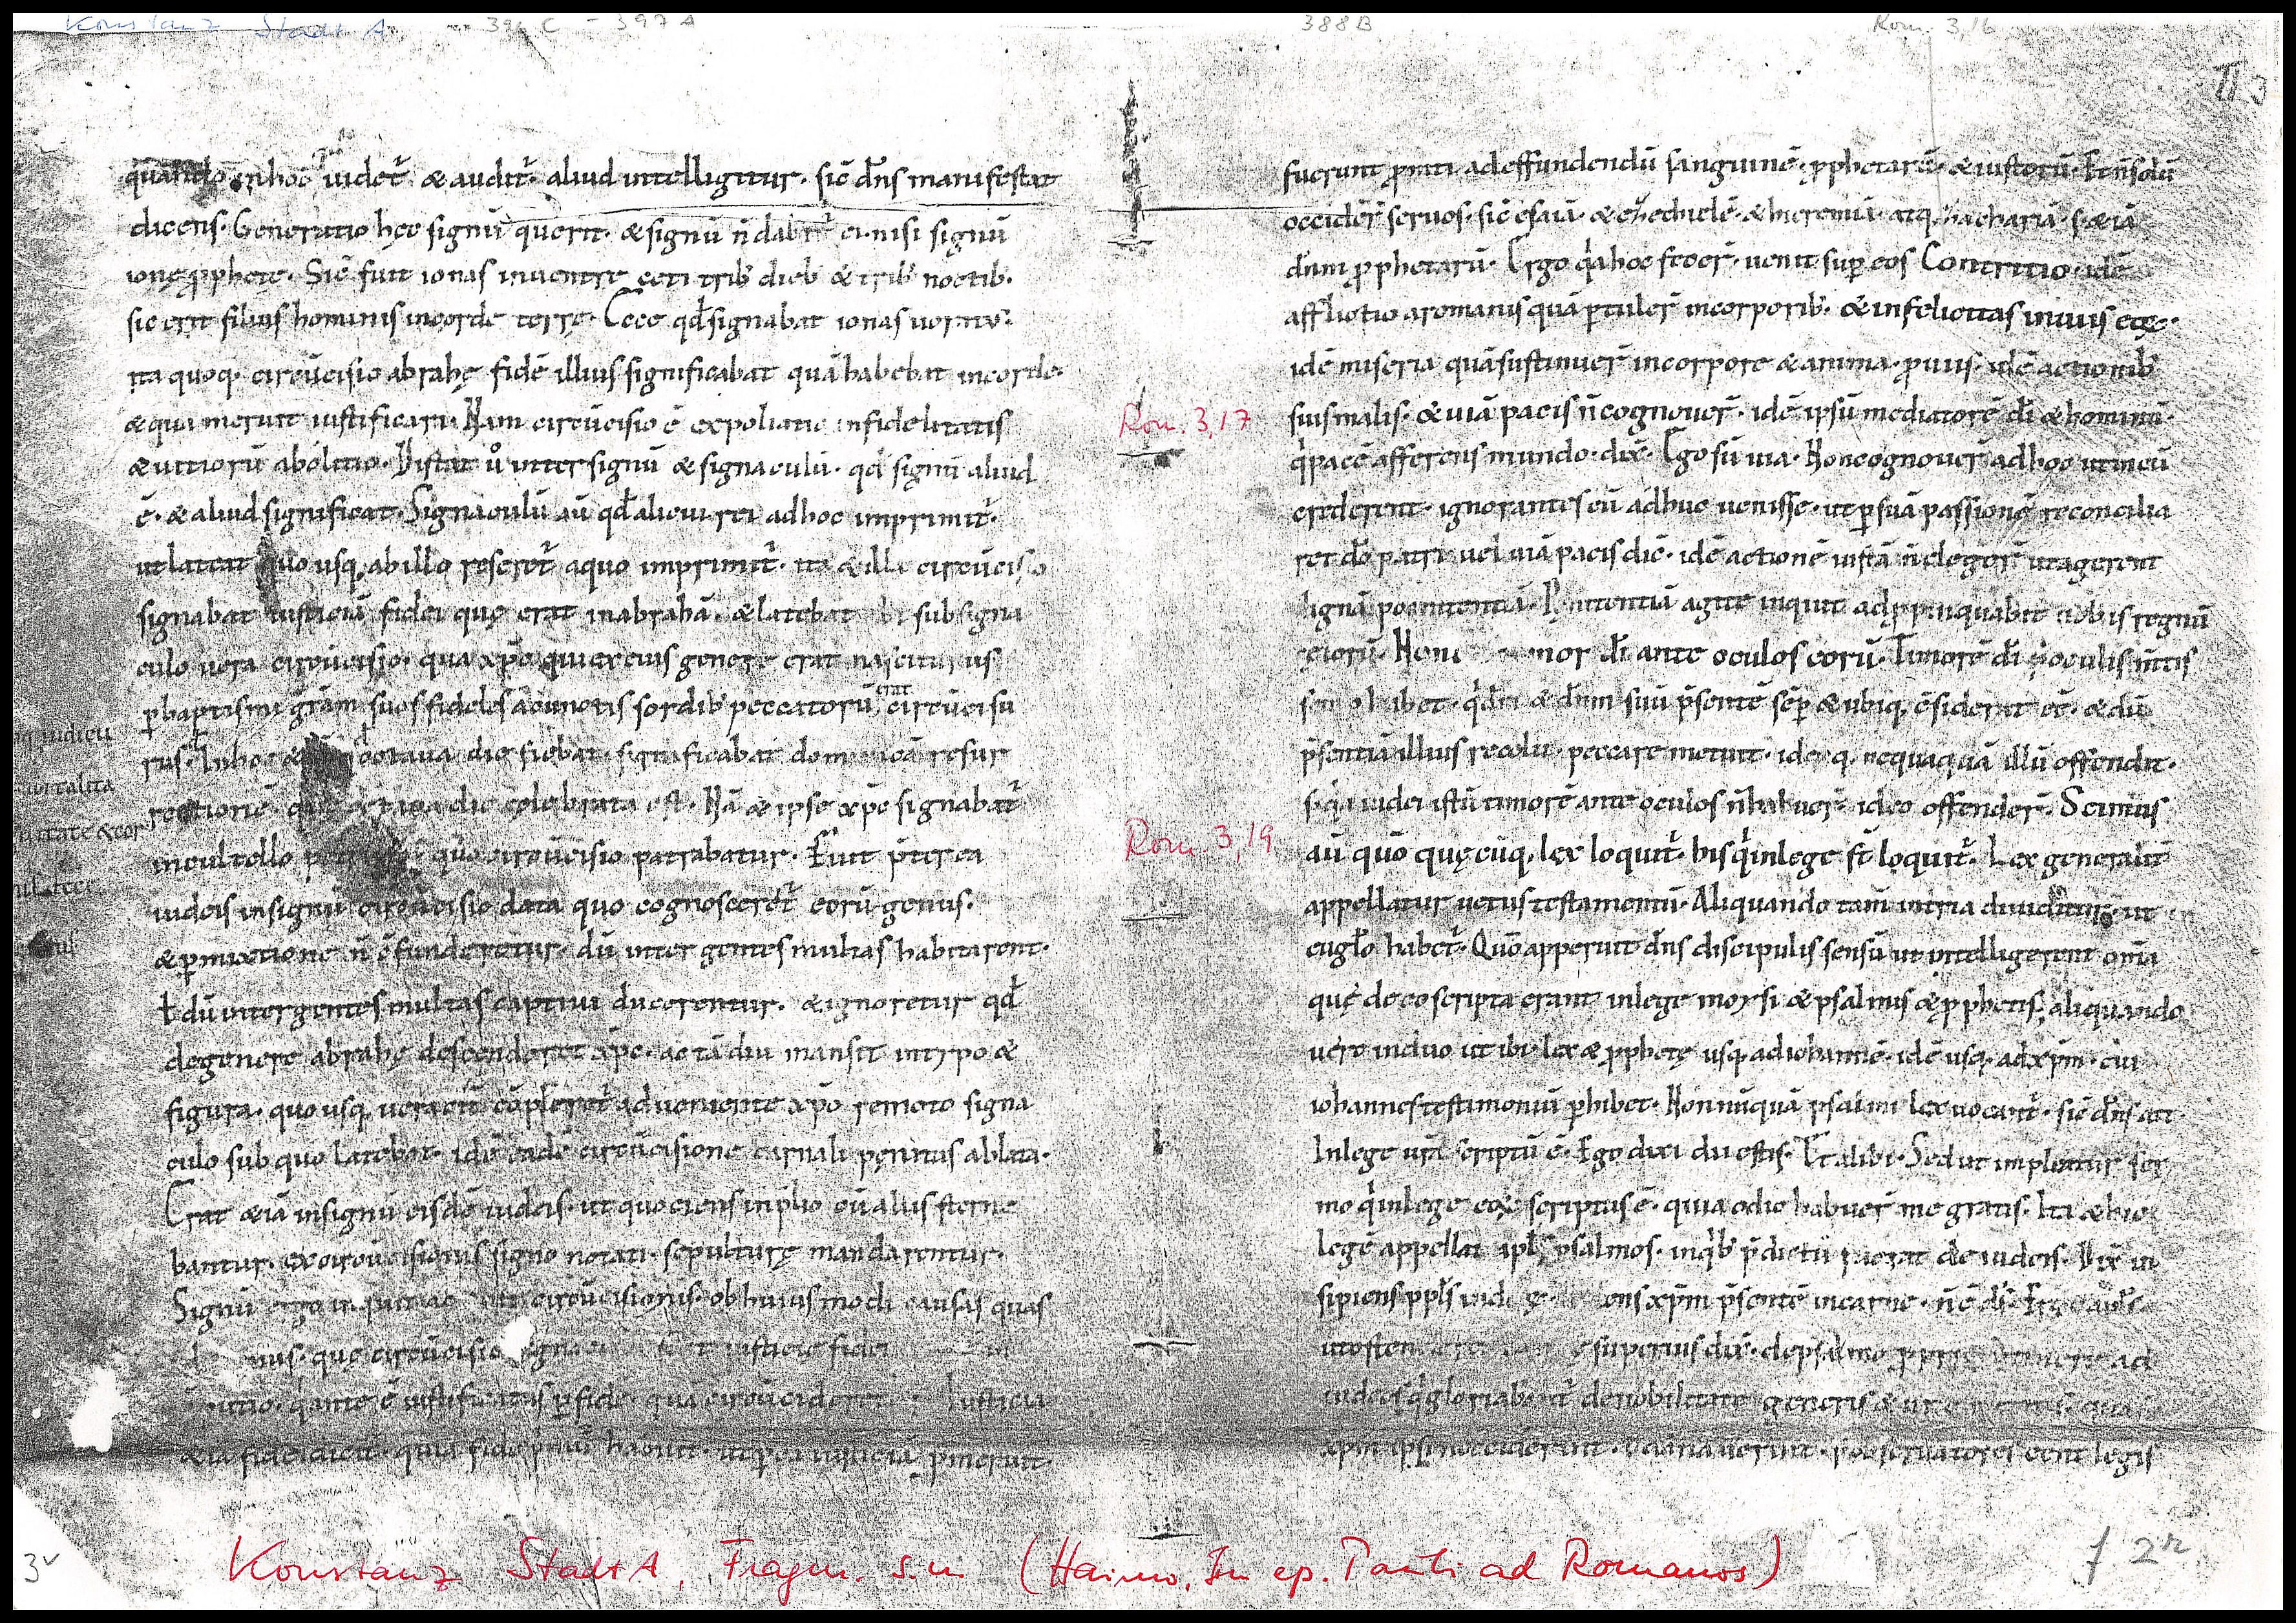 Konstanz Stadt A. 396 C - 397 A
388 B Rom. 3,16
II 3
in hoc uidet᷑ & audit᷑ aliud intelligitur. sic̄ dn̄s manifestat
dicens. Generatio hęc signū querit. & signū n̄ dabit᷑ ei. nisi signū
ionę ꝓphetę. Sic̄ fuit ionas inuentre ceti trib; dieb; & trib; noctib;
sic erit filius hominis incorde terrę. Ecce qd̄ signabat ionas
ita quoq; circūcisio abrahę fidē illius significabat quā habebat incorde
& qua meruit iustificari. Nam circūcisio ē expoliatio infidelitatis
& uitiorū abolitio. Distat ů inter signū & signaculū. qd̄ signū aliud
ē. & aliud significat. Signaculū aū qd̄ alicui rei adhoc imprimit᷑.
ut lateat quo usq; abillo reseret᷑ aquo imprimit᷑. ita & illa circūcisio
signabat iusticiā fidei quę erat inabrahā. & latebat ibi sub signa
culo uera circūcisio. qua xp̄o qui ex eius genere erat nasciturus
ꝑ baptismi gr̄am suos fideles acunctis sordib; peccatorū erat circūcisu
rus. Inhoc octaua die fiebat. significabat dominicā resur
rectionē. octaua die celebrata est. Nā & ipse xp̄c signabat᷑
incultello quo circūcisio patrabatur. Fuit p̄terea
iudeis insignū circūcisio data quo cognosceret᷑ eorū genus.
& ꝑmixtione n̄ c̄funderetur. dū inter gentes multas habitarent.
ł dū intergentes multas captiui ducerentur. & ignoretur qd̄
degenere abrahę descenderet xp̄c. ac tā diu mansit intypo &
figura. quo usq; ueraciť cōpleret᷑ adueniente xp̄o remoto signa
culo sub quo latebat. idē eadē circūcisione carnali penitus ablata.
Erat &iā insignū eisdē iudeis. ut quociens inp̄lio cū aliis sterne
bantur. ex circūcisionis signo notati. sepulturę mandarentur.
Signū ergo inquit circūcisionis. ob huius modi causas quas
quę circūcisio iusticię fidei
q̇ ante ē iustificatus ꝑ fidē. quā circūcideret᷑ Iusticia
quia fidē habuit. ut ꝑ ea iusticiā
iudicu
mortalita
uitate & cor
fuerunt ꝓmti adeffundendū sanguinē. ꝓphetarū. & iustorū. Et n̄ solū
occiderť seruos. sic̄ esaiā. & ezechielē. & hieremiā. atq; zachariā. s; &iā
dn̄m ꝓphetarū. Ergo q̇a hoc fecerť. uenit suꝑ eos Contritio. idē
afflictio aromanis quā ꝑtulerť incorporib;. & infelicitas inuiis eoꝝ.
idē miseria quā sustinuerť incorpore & anima. ꝓ uiis. idē actionib;
Rom. 3,17
suis malis. & uiā pacis n̄ cognouerť. idē ipsū mediatorē dī & hominū.
q̇ pacē afferens mundo. dix̄. Ego sū uia. Non cognouerť adhoc ut incū
crederent. ignorantes eū adhuc uenisse. ut ꝑ suā passionē reconcilia
ret dō patri. uel uiā pacis dic̄. idē actionē iustā n̄ elegerť ut agerent
dignā poenitentiā. Penitentiā agite inquit adꝓpinquabit uobis regnū
celorū. Non timor dī ante oculos eorū. Timorē dī p̄ oculis m̄tis
semꝑ habet. q̇ dm̄ & dn̄m suū p̄sentē sēꝑ & ubiq; c̄siderat eē. & dū
p̄sentiā illius recolit. peccare metuit. ideoq; nequaquā illū offendit.
s; q̇a iudei istū timorē ante oculos n̄ habuerť. ideo offenderť. Scimus
Rom. 3,19
aū quō quęcūq; lex loquit᷑. his q̇ inlege sť loquit᷑. Lex generalit᷑
appellatur uetus testamentū. Aliquando tam̄ intria diuiditur. ut in
euḡlo habet᷑. Quō apperuit dn̄s discipulis sensū ut intelligerent om̄ia
quę de eo scripta erant inlege moysi & psalmis & ꝓphetis. aliquando
uero induo ut ibi. lex & ꝓphetę usq; adiohannē. idē usq; adxp̄m. cui
iohannes testimoniū ꝑhibet. Non nūquā psalmi lex uocant᷑. sic̄ dn̄s ait
Inlege ūra scriptū ē. Ego dixi dii estis. Et alibi. Sed ut impleatur ser
mo q̇ inlege eoꝝ scriptus ē. quia odio habuerť me gratis. Ita & hic
legē appellat apłs psalmos. inq̇b; p̄dictū fuerat de iudeis. Dix̄ in
sipiens ppłs xp̄m p̄sentē incarne. n̄ ē dš.
superius dix̄. de psalmo
iudeis q̇ gloriabant᷑ denobilitate generis
xp̄m legis
3v
Konstanz StadtA, Fragm. s.n (Haimo, In ep. Pauli ad Romanos)
f 2r